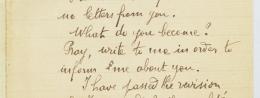 no letters from you.
What do you become?
Pray, write to me in order to
inform me about you.
I have passed the revision